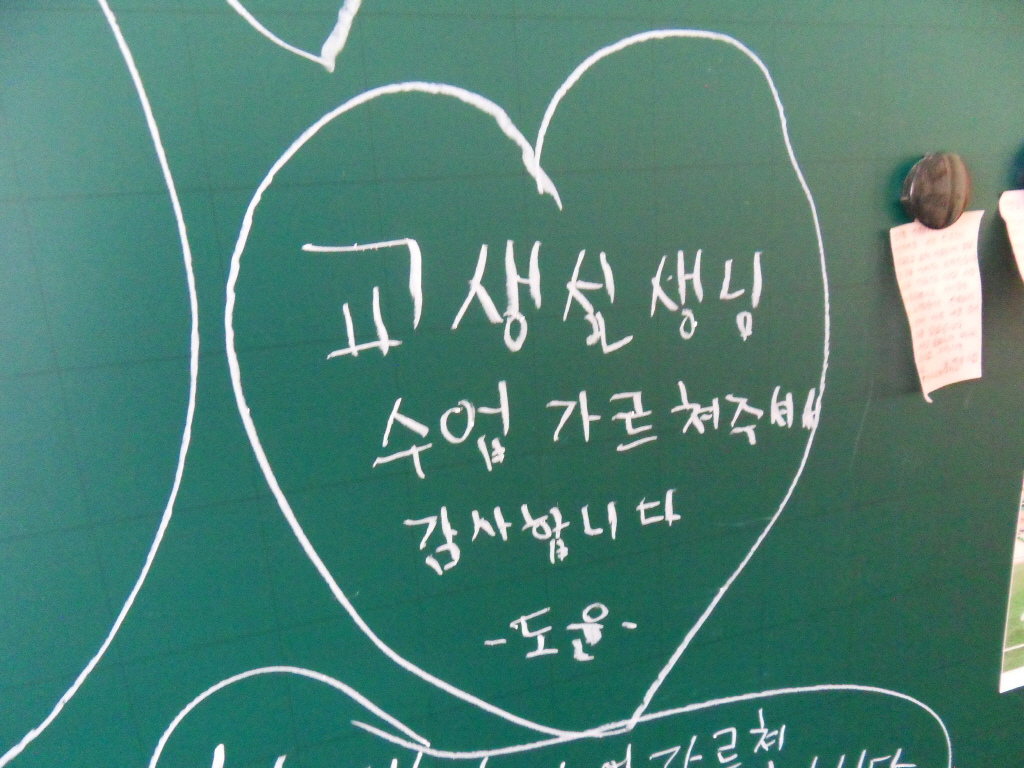 교생선생님
수업 가르쳐주셔서
감사합니다
-도윤-
가르쳐